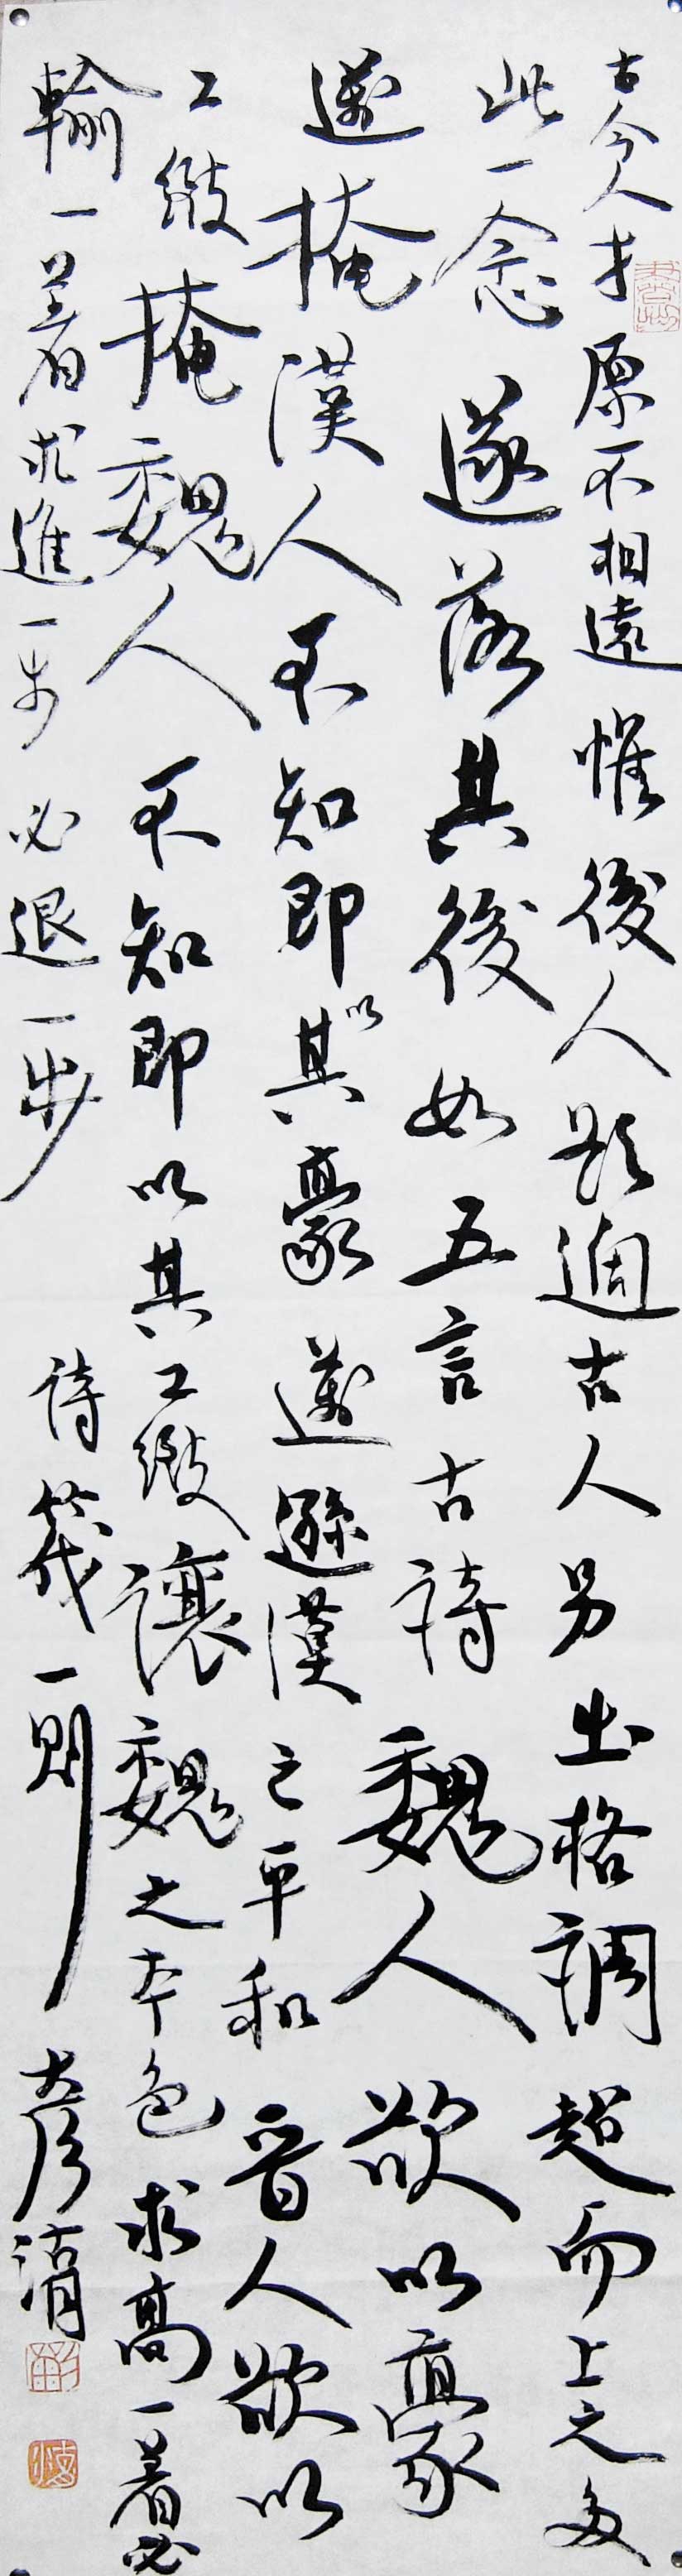 古今人才原不相遠惟後人欲過古人另出格調超而上之多
此一念遂落其後如五言古詩魏人欲以豪
邁掩漢人不知即以其豪邁遜漢之平和晋人欲以
工緻掩魏人不知即以其工緻讓魏之本色求高一著必
輸一著求進一步必退一步
詩筏一則
彦涓